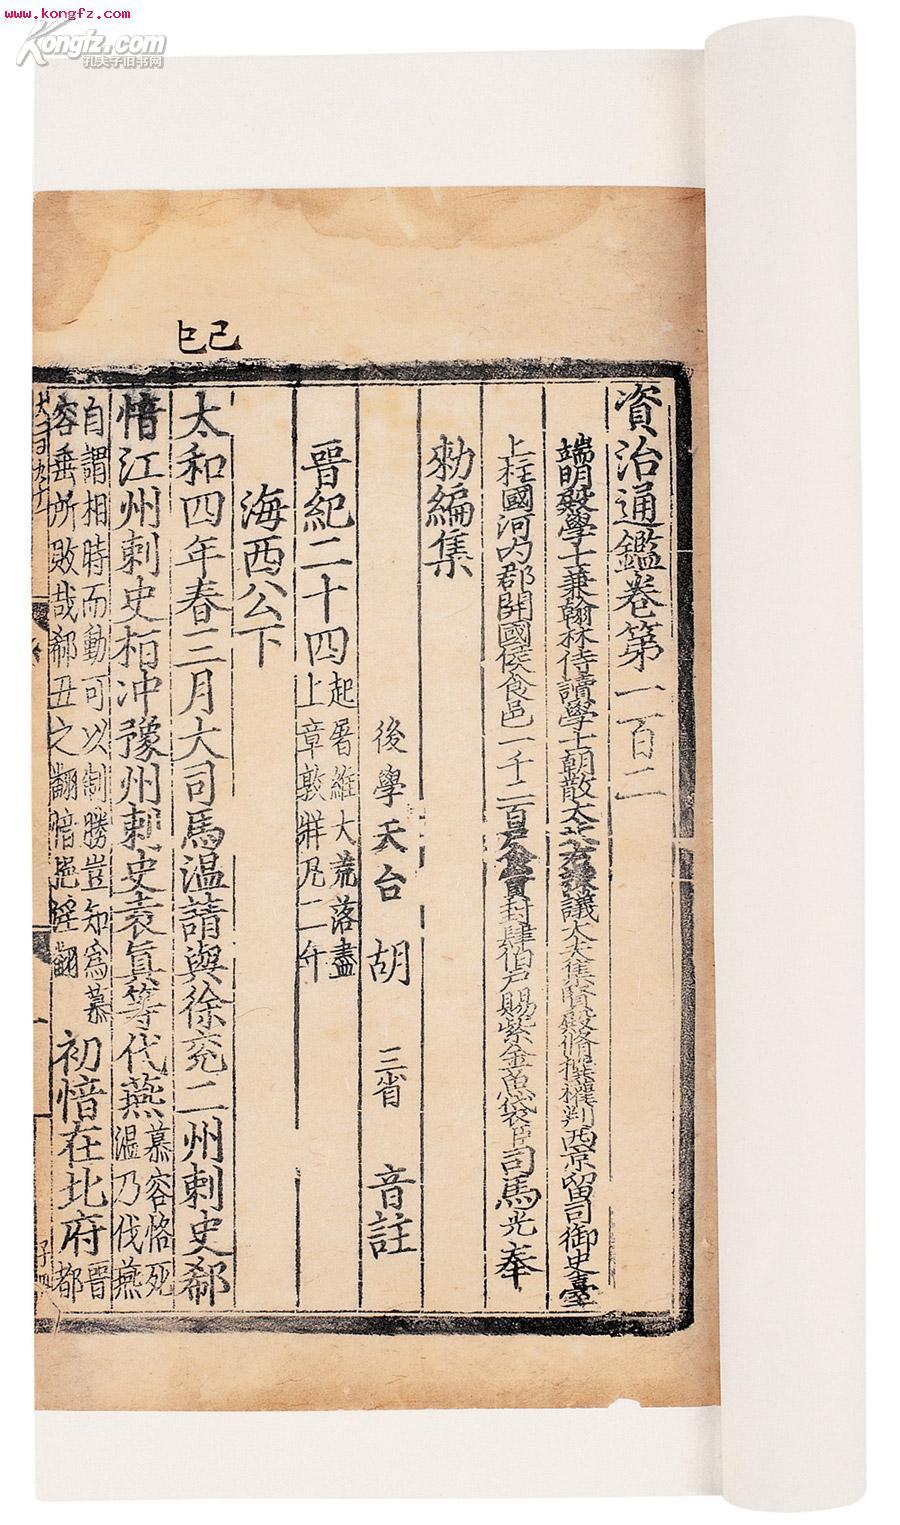 www.kongfz.com
Kongfz.com
孔夫子旧书网
己巳
資治通鑑卷第一百二
端明殿學士兼翰林侍讀學士朝散大夫右諫議大夫集賢殿脩撰權判西京留司御史臺
上柱國河內郡開國侯食邑一千二百戶食實封肆伯戶賜紫金魚袋臣司馬光奉
勑編集
後學天台胡三省音註
晉紀二十四起屠維大荒落盡
上章敦牂凡二年
海西公下
太和四年春三月大司馬温請與徐兖二州刺史郗
愔江州刺史桓冲豫州刺史袁真等伐燕慕容恪死
温乃伐燕
自謂相時而動可以制勝豈知為慕
容垂所敗哉郗丑之翻愔挹淫翻初愔在北府晉
都